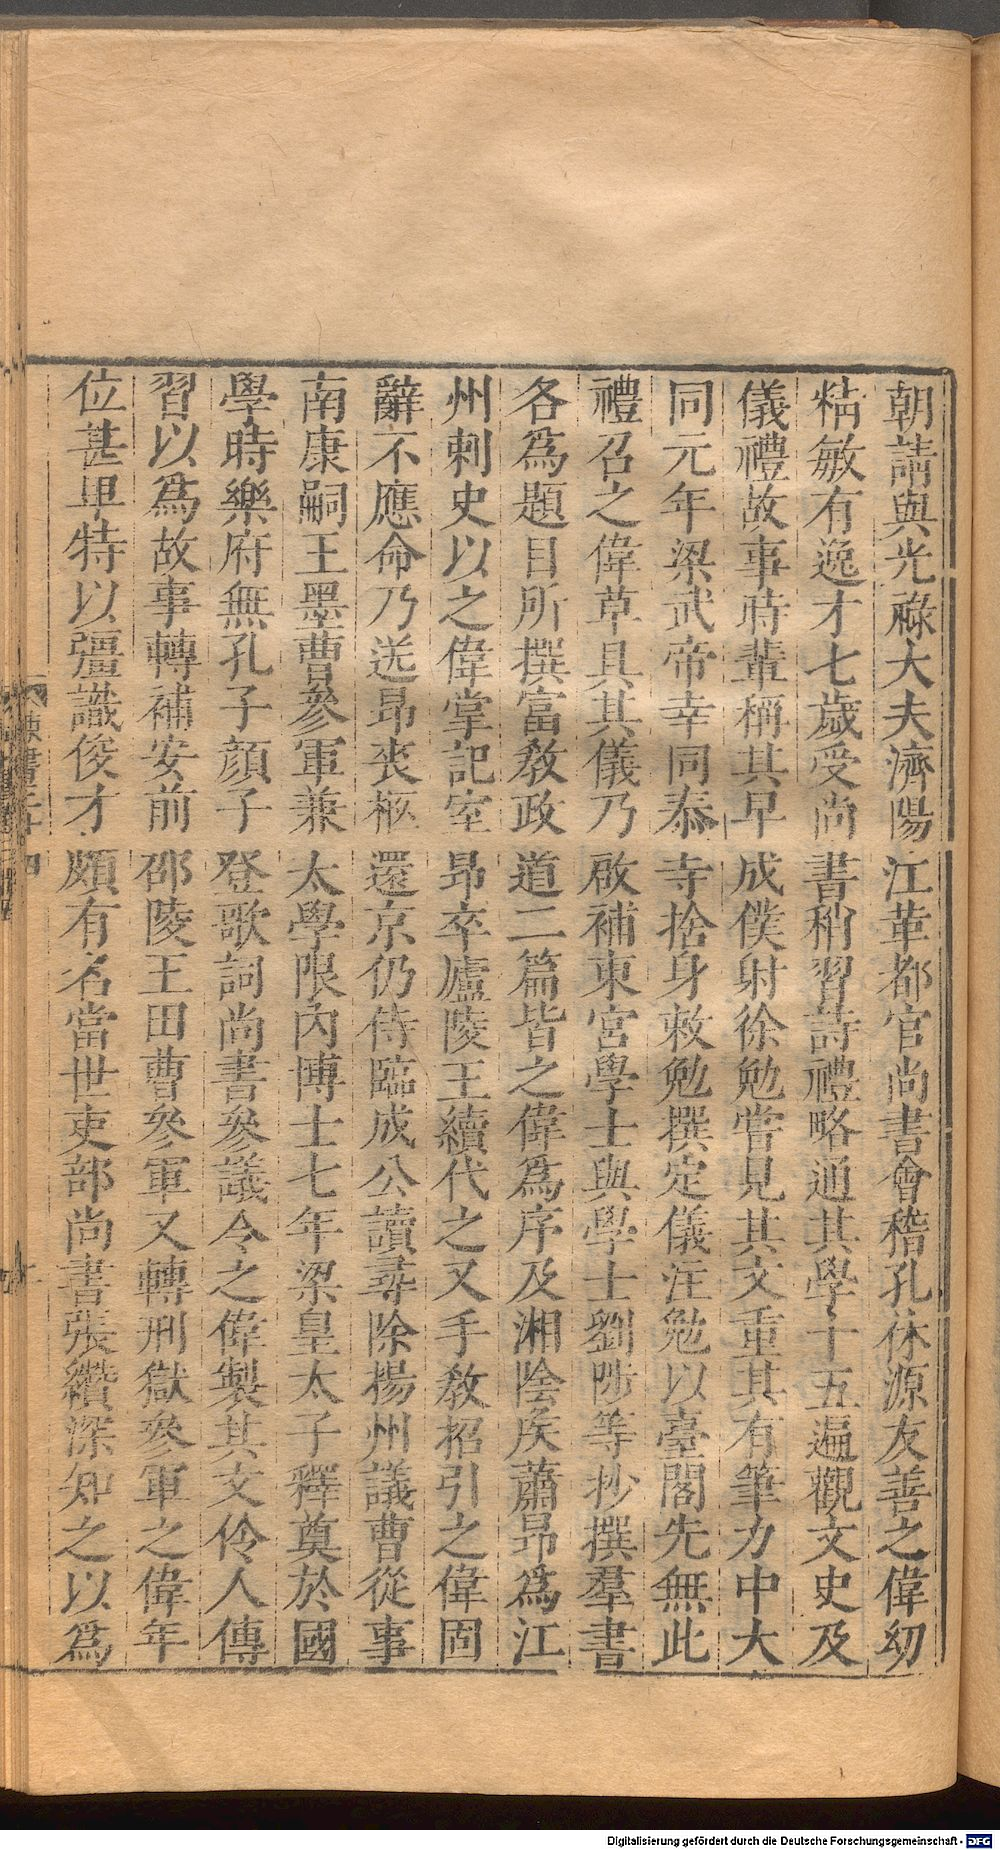 朝請與光祿大夫濟陽江革都官尚書會稽孔休源友善之偉幼
精敏有逸才七歲受尚書稍習詩禮略通其學十五遍觀文史及
儀禮故事時輩稱其早成僕射徐勉嘗見其文重其有筆力中大
同元年梁武帝幸同泰寺捨身敕勉撰定儀注勉以臺閣先無此
禮召之偉草具其儀乃啟補東宮學士與學士劉陟等抄撰羣書
各爲題目所撰富教政道二篇皆之偉爲序及湘陰侯蕭昂爲江
州刺史以之偉掌記室昂卒廬陵王續代之又手教招引之偉固
辭不應命乃送昂喪柩還京仍侍臨成公讀尋除揚州議曹從事
南康嗣王墨曹參軍兼太學限內博士七年梁皇太子釋奠於國
學時樂府無孔子顏子登歌詞尚書參議令之偉製其文伶人傳
習以爲故事轉補安前邵陵王田曹參軍又轉刑獄參軍之偉年
位甚卑特以彊識俊才頗有名當世吏部尚書張纘深知之以爲
Digitalisierung gefördert durch die Deutsche Forschungsgemeinschaft - DFG